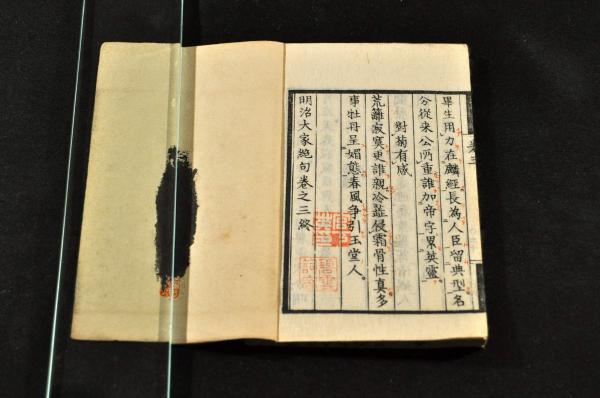 畢生用力在麟經長為人臣留典型名
分從来公両重誰加帝字累英靈
對菊有感
荒籬寂寞更誰親冷蕊侵霜骨性真多
事牡丹呈媚態春風争引玉堂人
明治大家絶句巻之三終